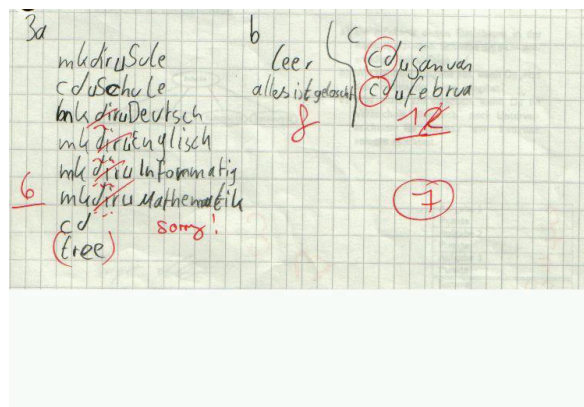 3a
mkdiruSule
cduSchule
mkdiruDeutsch
mkdiruEnglisch
mkdiruInformmatig
6 mkdiruMathematik
cd sorry!
(tree)
b
leer
alles ist gelöscht
8
c
cdujanuar
cdufebrua
12
7